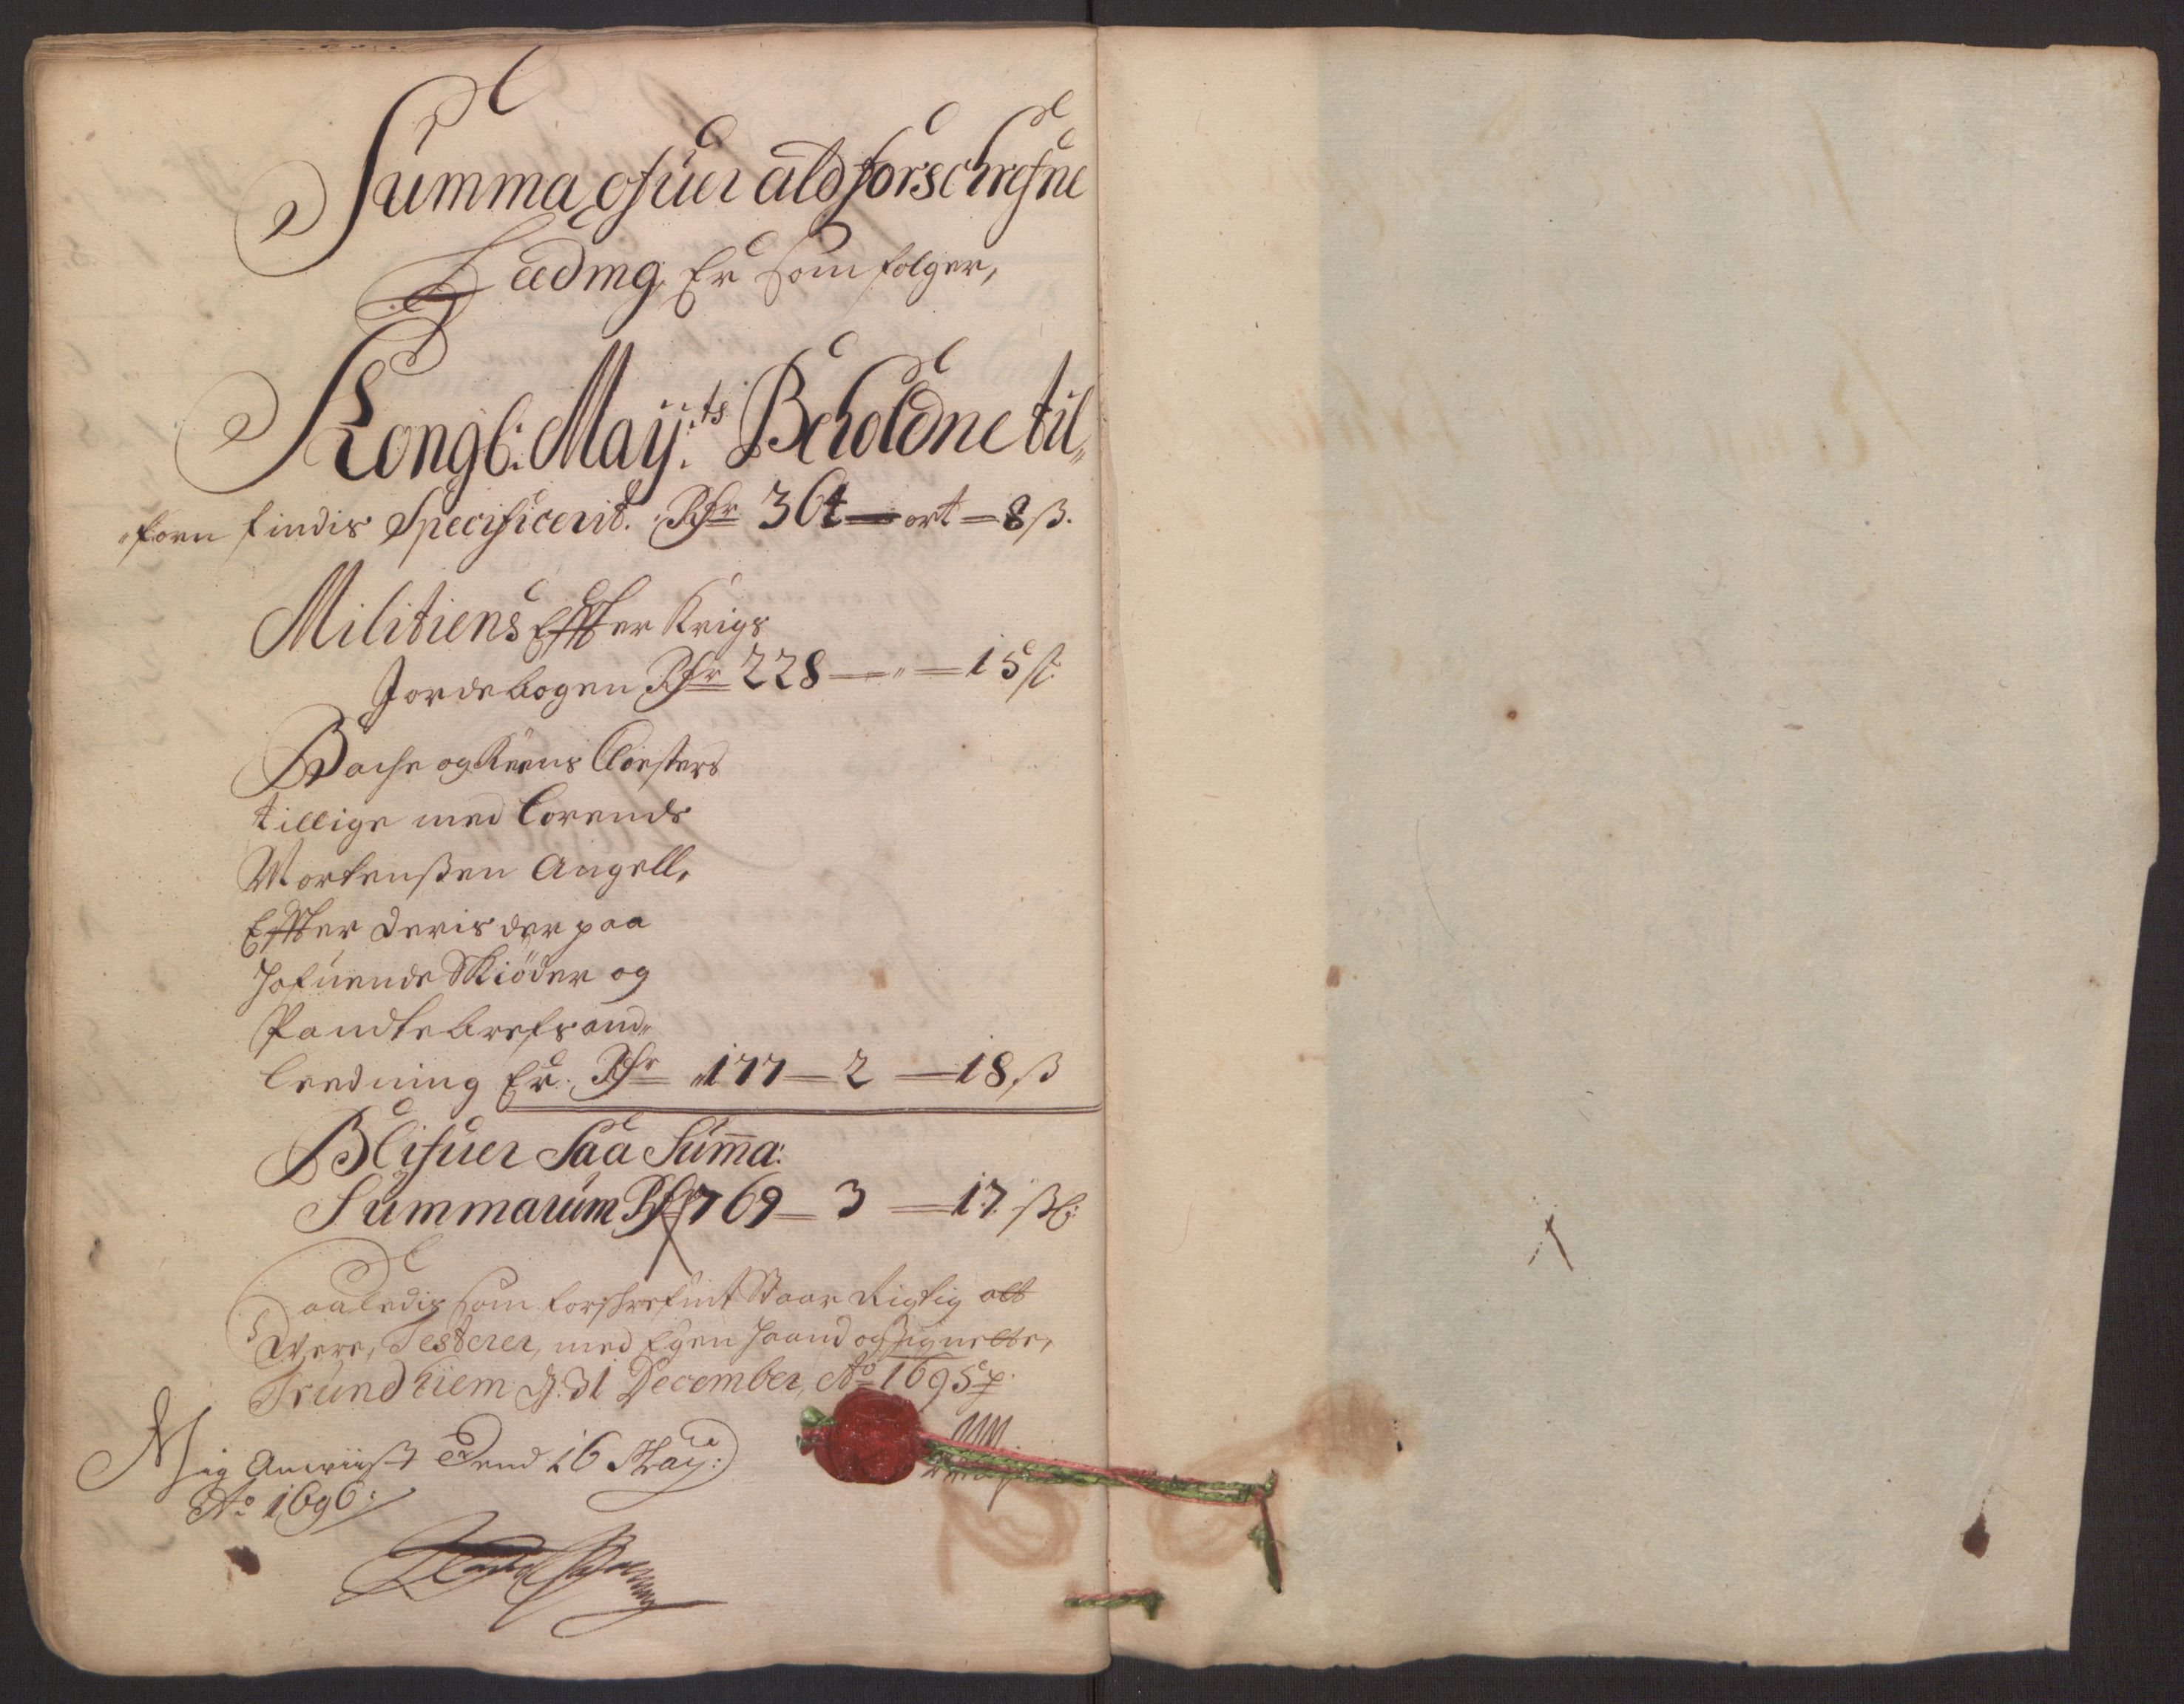 Summa ofuer ald forschrefne
Leding, Er som følger,
Kongl: Mayj:ts Beholdne til„
„forn findis Specificerit. Rdr 364 — ort — 8 ß.
Militiens Effter Krigs
Jordebogen Rdr 228 — „ — 15 ß
Bache og Reens Closters
tillige med Lorends
Mortenßen Angell,
Effter deris der paa
hafuende Skiöder og
Pandtebrefs and„
leedning Er. Rdr „177 — 2 — 18 ß
Blifuer Saa Suma:
Summarum Rdr 769 — 3 — 17 ßl:
Saaledis som forschrefuit Staar Rigtig alt
Were, Testerer, med Egen haand og Signette,
Trundhiem d. 31 December, Ao 1695
Mig Anwiist Dend 16 Maij:
Ao 1696: